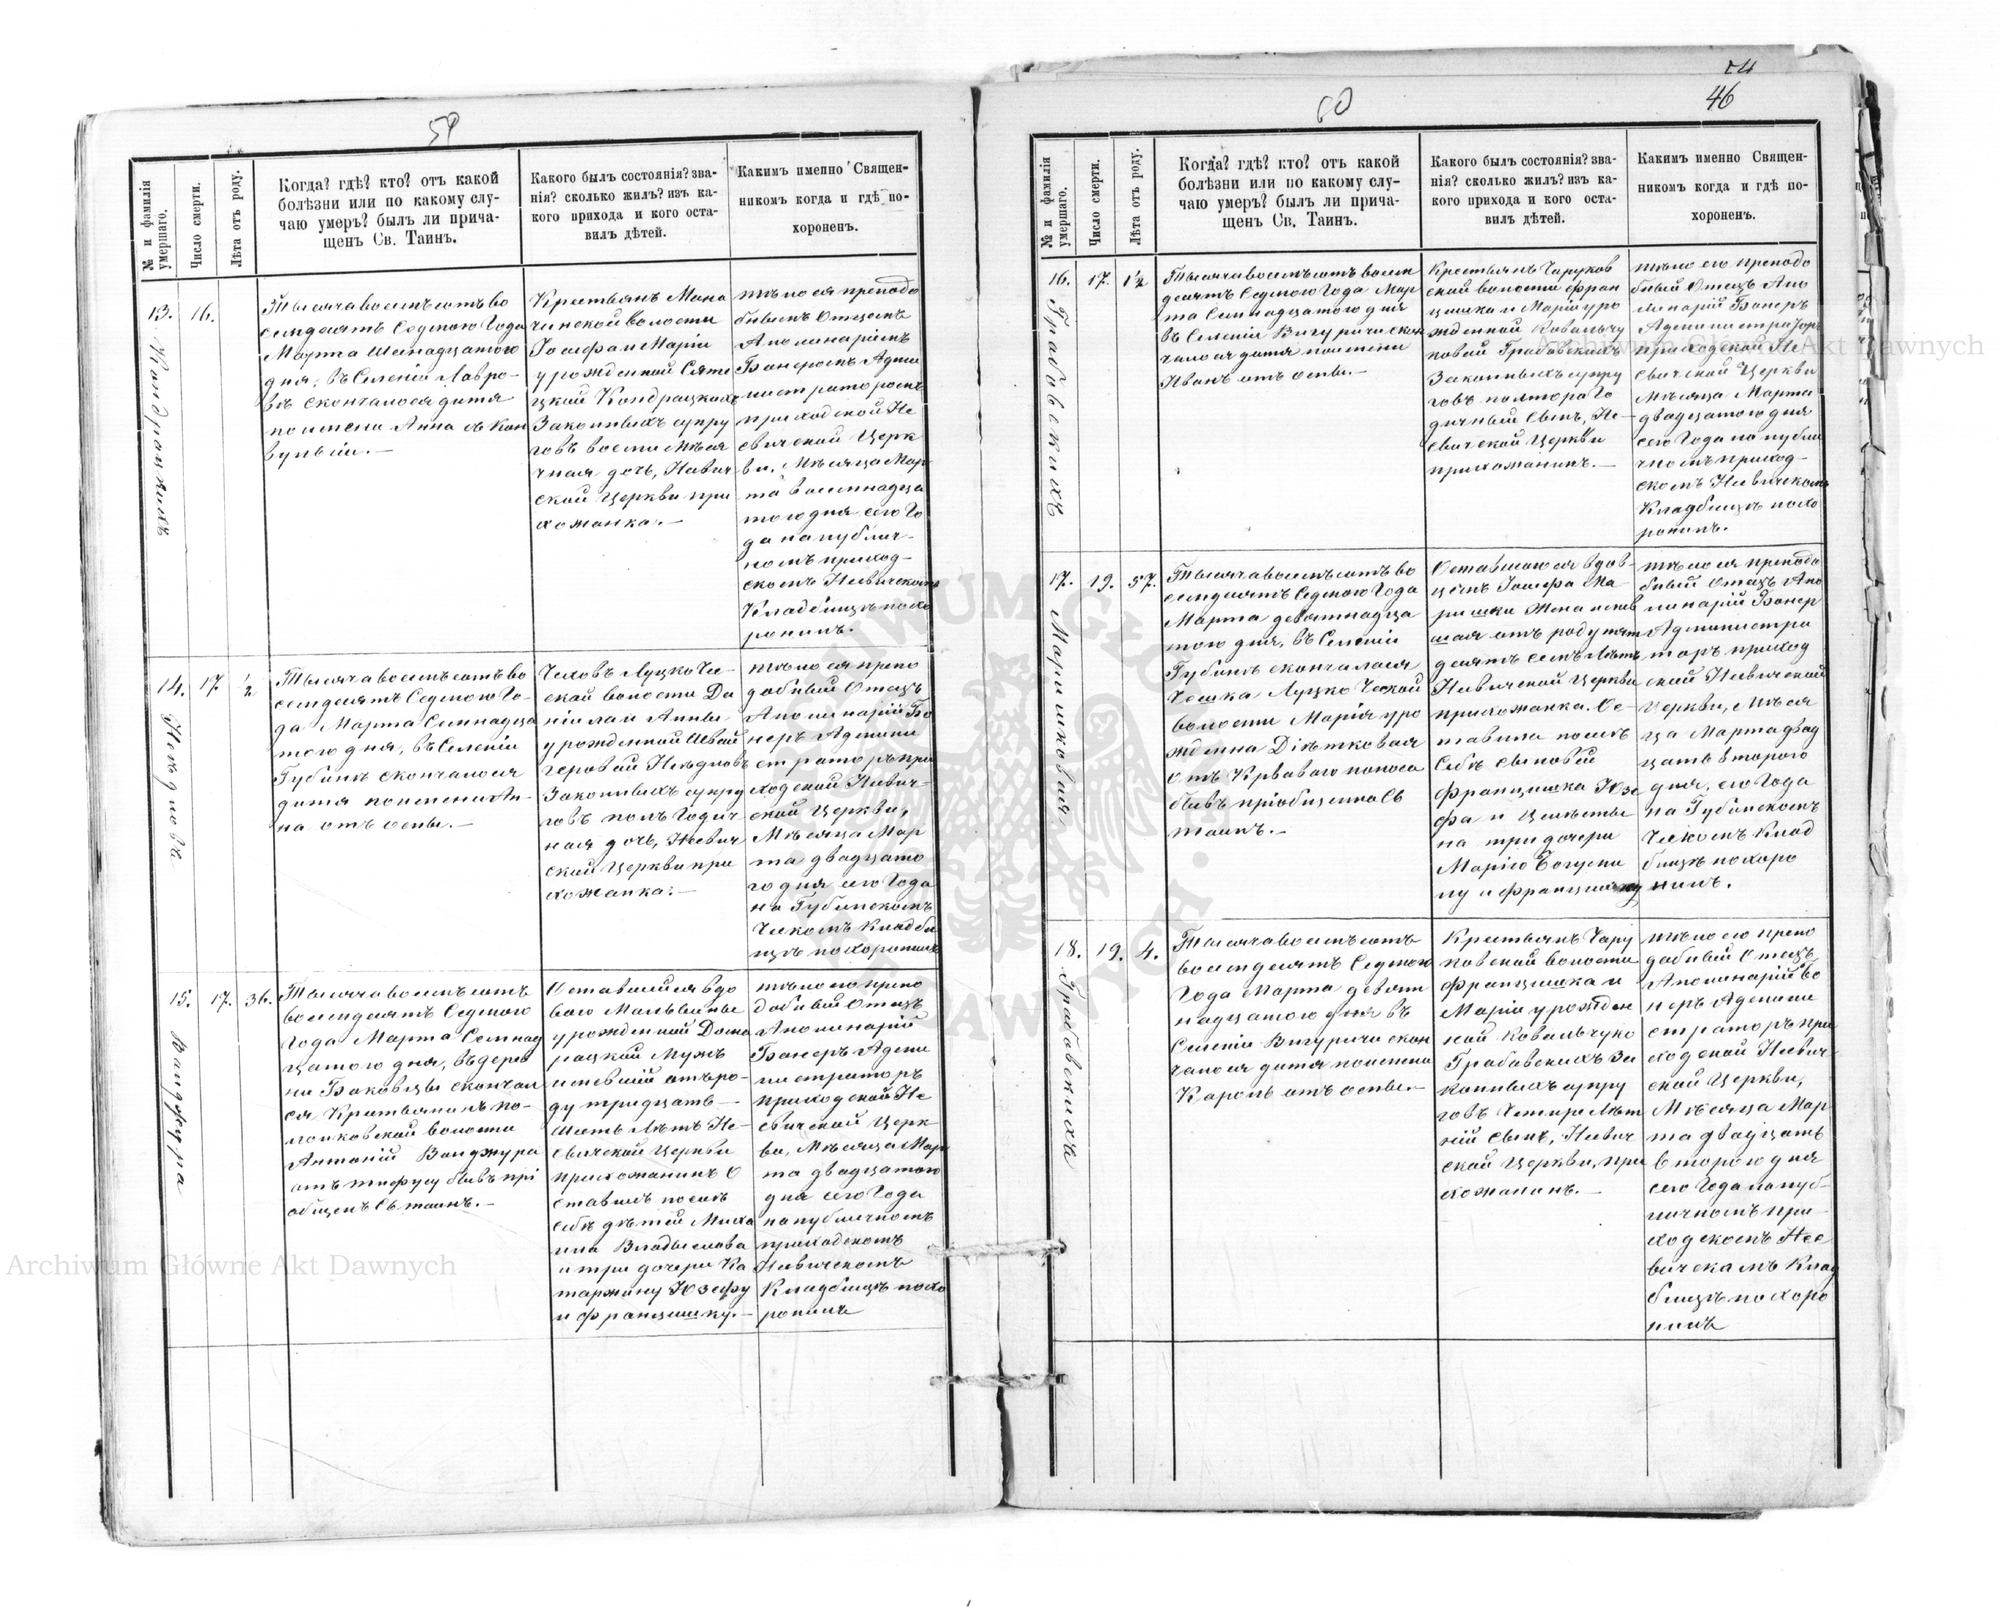 59
№ и фамилія умершаго.
Число смерти.
Лѣта отъ роду.
Когда? гдѣ? кто? отъ какой
болѣзни или по какому слу-
чаю умеръ? былъ ли прича-
щенъ Св. Таинъ.
Какого былъ состоянія? зва-
нія? сколько жилъ? изъ ка-
кого прихода и кого оста-
вилъ дѣтей.
Какимъ именно Священ-
никомъ когда и гдѣ по-
хороненъ.
13.
Кондрацкихъ
16.
Тысяча восемьсотъ во
семдесятъ Седмого Года
Марта Шестнадцатого
дня, въ Селеніи Лавро-
въ скончалося дитя
по имени Анна съ кон
вульсіи.—
Крестьянъ
волости
Іосифа и Маріи
урожденной
Кондрацкихъ
Законныхъ супру
говъ восьми мѣся
чная дочь,
ской Церкви при
хожанка.—
тѣло ея преподо
бнымъ Отцемъ
Аполинаріемъ
Бонеромъ Адми
нистраторомъ
приходской Не
свичской Церк
ви, Мѣсяца Мар
та восемнадца
того дня сего Го
да на публич-
номъ приход-
скомъ Несвичскомъ
Кладбищѣ похо
ронинъ.
14.
17
1/2
Тысяча восемьсотъ во
семдесятъ Седмого Го-
да Марта Семнадца
того дня, въ Селеніи
Губинѣ скончалося
дитя по имени Ан-
на отъ оспы.—
Чеховъ Луцко Че-
ской волости Да
ніила и Анны
урожденной
Законныхъ супру
говъ пол Годич
ная дочь, Несвич
ской Церкви при
хожанка.—
тѣло ея препо
добный Отецъ
Аполинарій Бо
неръ Админи
страторъ при
ходской Несвич-
ской Церкви,
Мѣсяца Мар
та двадцато
го дня сего Года
на Губинскомъ
Ческомъ Кладби
щѣ похоронинъ
15.
Ванджура
17.
36.
Тысяча восемьсотъ
восемдесятъ Седмого
Года Марта Семнад
цатого дня, въ дерев
ни Баковцы скончал
ся Крестьянинъ по-
лонковской волости
Антоній Ванджура
отъ тифусу бывъ прі
общенъ Св таинъ.—
Оставшийся вдо
вою Мальвины
урожденной Дома
рацкой Мужъ
имевшій отъ ро-
ду тридцать
шесть лѣтъ Не-
свичской Церкви
прихожанинъ О
ставилъ после
себѣ дѣтей Миха
ила Владыслава
и три дочери Ка
таржину Юзефу
и Францишку.—
тѣло его препо
добный Отецъ
Аполинарій
Бонеръ Адми
нистраторъ
приходской Не
свичской Церк
ви, Мѣсяца Мар
та двадцатого
дня сего Года
на публичномъ
приходскомъ
Несвичскомъ
Кладбищѣ похо
ронинъ
60
46
№ и фамилія умершаго.
Число смерти.
Лѣта отъ роду.
Когда? гдѣ? кто? отъ какой
болѣзни или по какому слу-
чаю умеръ? былъ ли прича-
щенъ Св. Таинъ.
Какого былъ состоянія? зва-
нія? сколько жилъ? изъ ка-
кого прихода и кого оста-
вилъ дѣтей.
Какимъ именно Священ-
никомъ когда и гдѣ по-
хороненъ.
16.
Грабовскихъ
17.
1 1/2
Тысяча восемьсотъ восем
десятъ Седмого Года Мар
та Семнадцатого дня
въ Селеніи Вигуричи скон
чалося дитя по имени
Иванъ отъ оспы.—
Крестьянъ Чаруков
ской волости Фран
цишка и Маріи уро
жденной Ковальчу
ковой Грабовскихъ
Законныхъ супру
говъ полтора Го
дичный сынъ, Не-
свичской Церкви
прихожанинъ.—
тѣло его преподо
бный Отецъ Апо
линарій Бонеръ
Администраторъ
приходской Не
свичской Церкви
Мѣсяца Марта
двадцатого дня
сего Года на публи
чномъ приход-
скомъ Несвичскомъ
Кладбищѣ похо
ронинъ.
17.
Маришковая
19.
57.
Тысяча восемьсотъ во
семдесятъ Седмого Года
Марта девятнадца
того дня, въ Селеніи
Губинѣ скончалася
Чешка Луцко Ческой
волости Марія уро
ждѣнна Дѣтковая
отъ Крваваго поноса
бывъ пріобщенна Св
таинъ.—
Оставшогося вдов-
цемъ Іосифа Ма-
ришки Жена имев
шая отъ роду пят
десятъ семь лѣтъ
Несвичской Церкви
прихожанка. Ос-
тавила послѣ
Себѣ сыновей
Францишка Юзе
фа и
на три дочери
Марію Богуми
лу и Францишку
тѣло ея преподо
бный Отецъ Апо
линарій Бонер
Администра
торъ приход
ской Несвичской
Церкви, Мѣся
ца Марта двад
цать второго
дня, сего Года
на Губинскомъ
Ческомъ Клад
бищѣ похоро
нинъ.
18.
Грабовскихъ
19.
4.
Тысяча восемьсотъ
восемдесятъ Седмого
Года Марта девят
надцатого дня въ
Селеніи Вигуричи скон
чалося дитя по имени
Кароль отъ оспы.—
Крестьянъ Чару
ковской волости
Францишка и
Маріи урожден
ной Ковальчуко
Грабовскихъ За
конныхъ супру
говъ Четиро Лѣт
ній сынъ, Несвич
ской Церкви, при
хожанинъ.—
тѣло его препо
добный Отецъ
Аполинарій Бо
неръ Админи
страторъ при
ходской Несвич-
ской Церкви,
Мѣсяца Мар
та двадцать
второго дня
сего Года на пуб-
личномъ при-
ходскомъ Нес
вичскамъ Клад
бищѣ похоро
нинъ
Archiwum Główne Akt Dawnych
Archiwum Główne Akt Dawnych